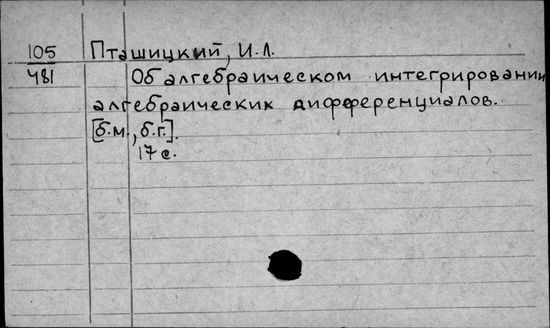 105 Пташицкий, И.Л.
481 Об алгебраическом интегрировании
алгебраических дифференциалов.
[б.м., б.г.].
17 с.